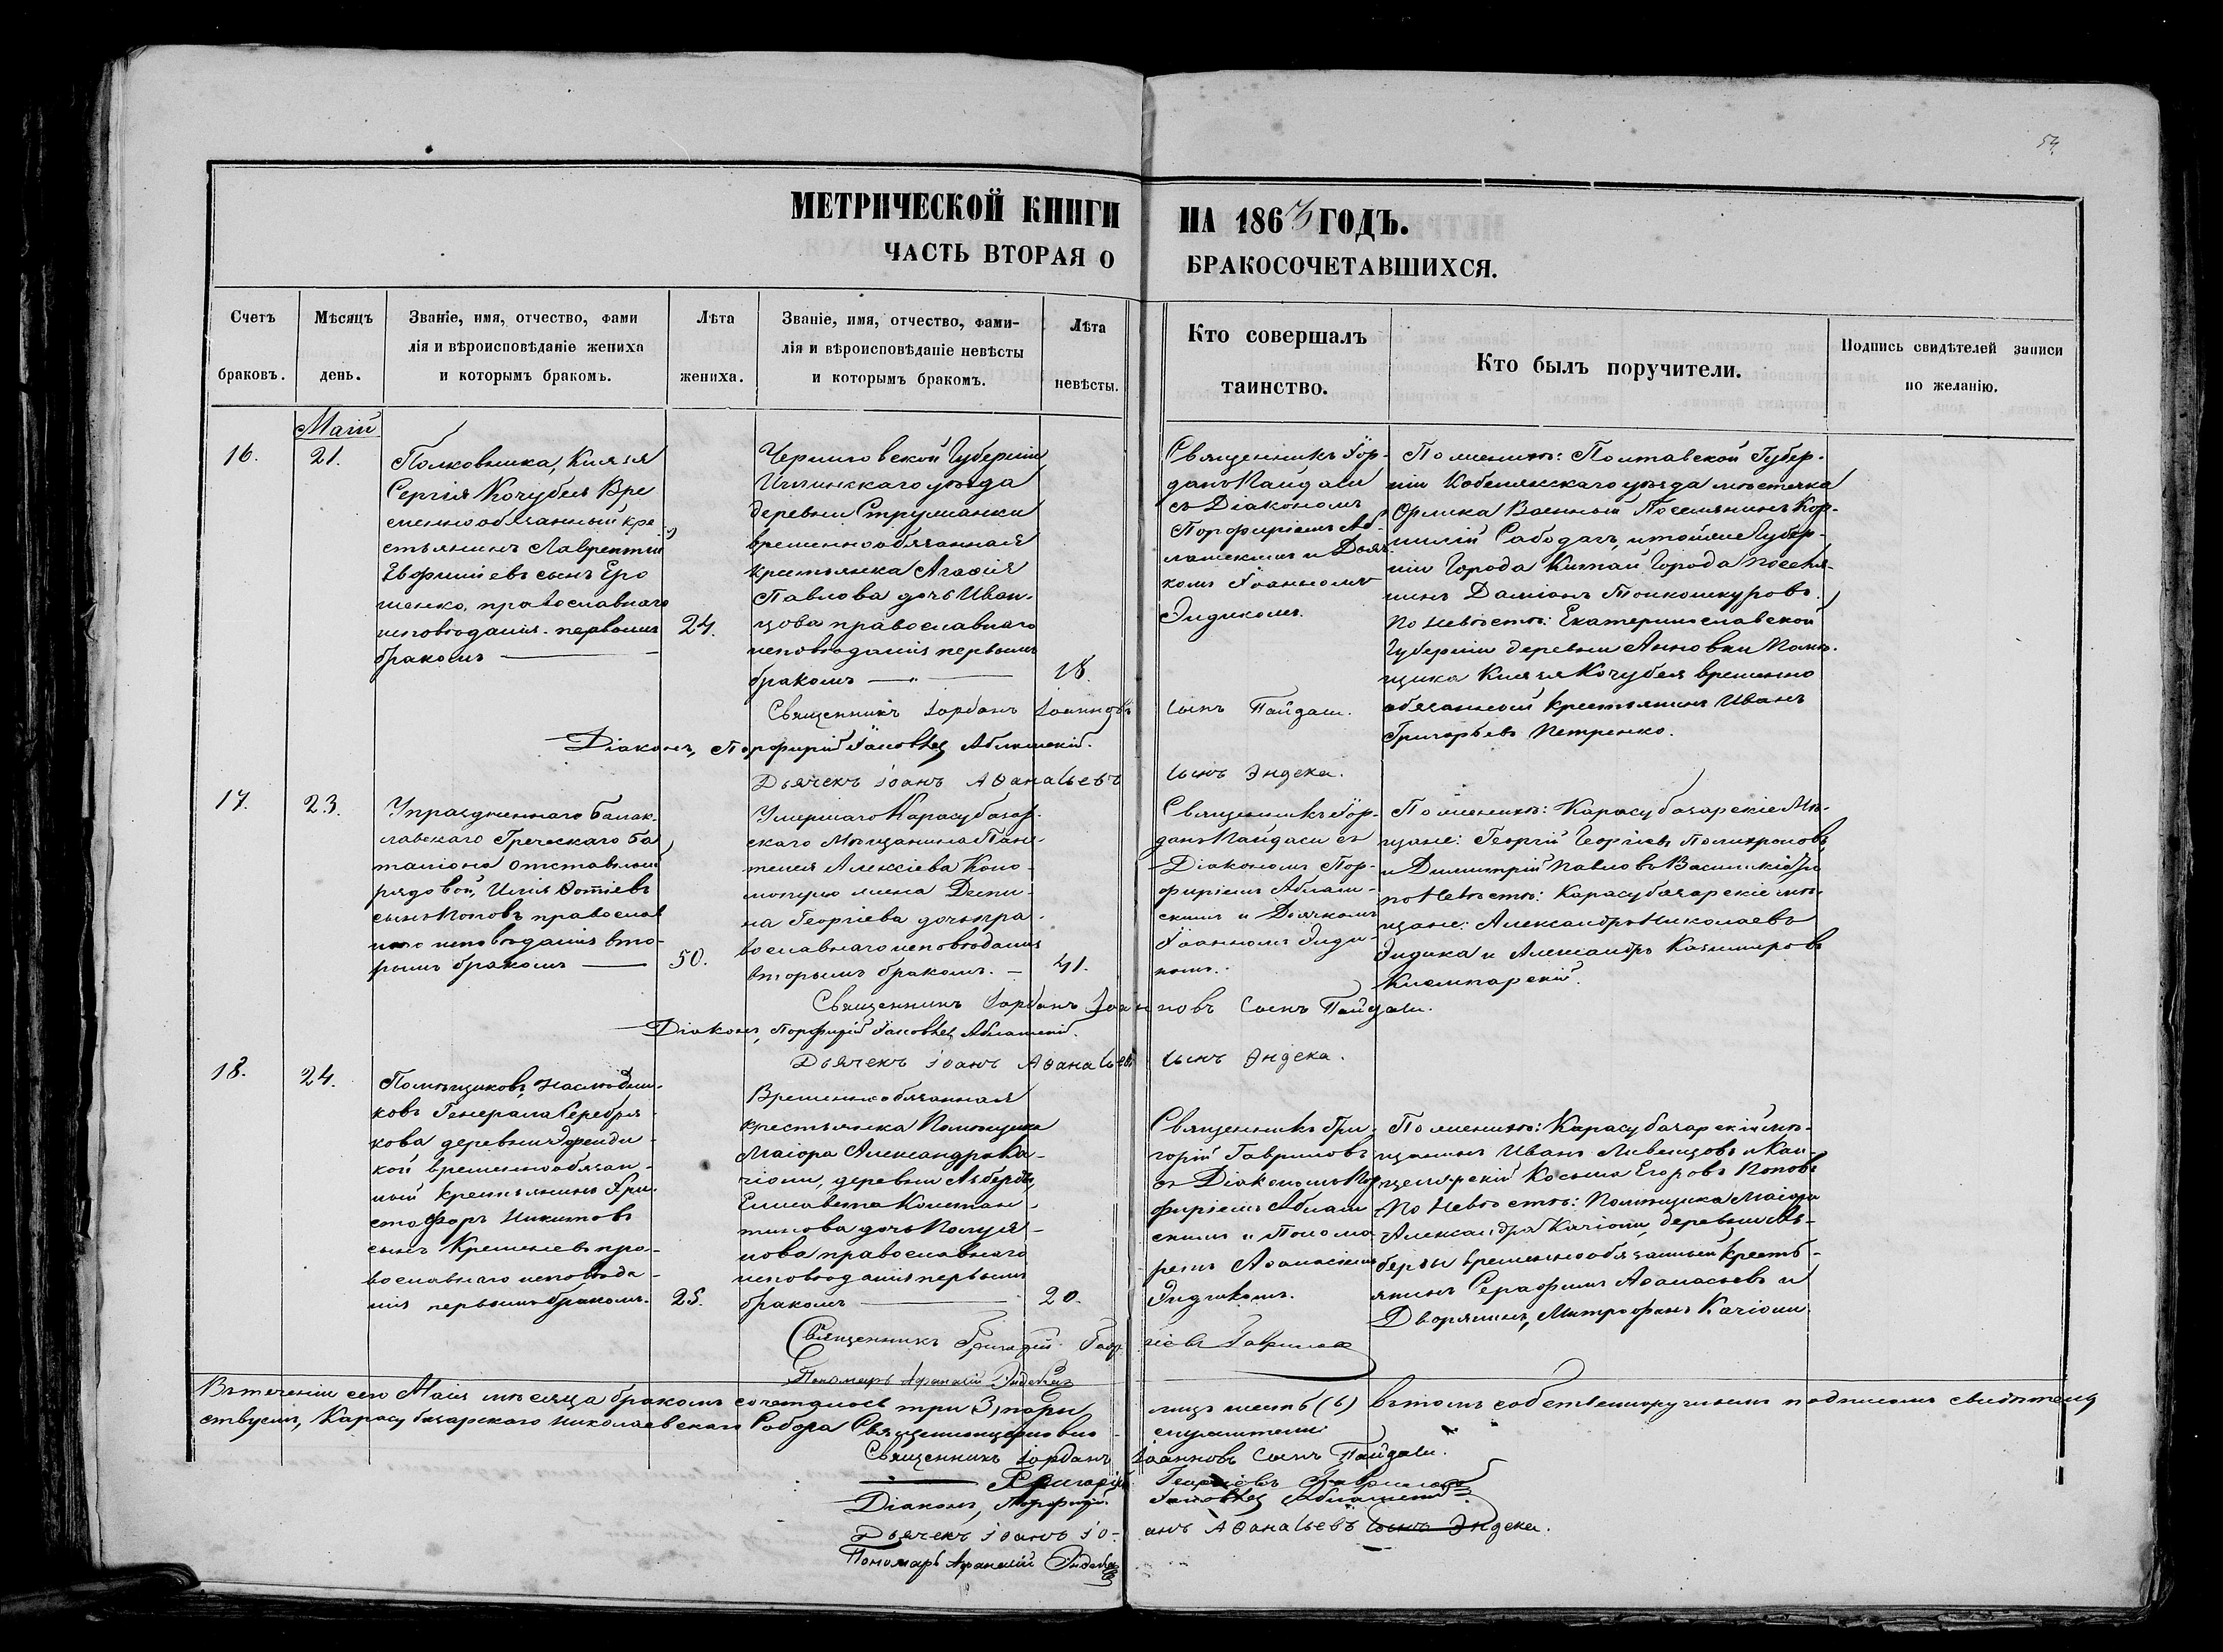 54
МЕТРИЧЕСКОЙ КНИГИ НА 1863 ГОДЪ.
ЧАСТЬ ВТОРАЯ О БРАКОСОЧЕТАВШИХСЯ.
Счетъ
браковъ.
Мѣсяцъ
день.
Званіе, имя, отчество, фами
лія и вѣроисповѣданіе жениха
и которымъ бракомъ.
Лѣта
жениха.
Званіе, имя, отчество, фами-
лія и вѣроисповѣданіе невѣсты
и которымъ бракомъ.
Лѣта
невѣсты.
Кто совершалъ
таинство.
Кто былъ поручители.
Подпись свидѣтелей записи
по желанію.
Маій
16.
21.
Полковника, Князя
Сергія Кочубея Вре
менно обязанный кре
стьянинъ Лаврентій
Евфиміевъ сынъ Еро
шенко, православнаго
исповѣданія первымъ
бракомъ
24.
Черниговской Губерніи
уѣзда
деревни Струманки
временнообязанная
крестьянка Агафія
Павлова дочь Иван-
цова православнаго
исповѣданія первымъ
бракомъ
18.
Священникъ Іор-
данъ Пайдаси
съ Діакономъ
Порфиріемъ Аб-
лашскимъ и Дьяч
комъ Іоанномъ
Эндикомъ.
По женихѣ: Полтавской Губер-
ніи Кобелякскаго уѣзда мѣстечка
Орлика Военный Поселянинъ Кор-
нилій Сабодаръ, и тойже Губер-
ніи Города Китай Города поселя-
нинъ Даміанъ
По Невѣстѣ: Екатеринославской
Губерніи деревни Анновки Помѣ-
щика Князя Кочубея временно
обязанной крестьянинъ Иванъ
Григорьевъ Петренко.
Священникъ Іорданъ Іоанновъ сынъ Пайдаси.
Діаконъ, Порфирій Іаковлев Аблашскій.
Дьячекъ Іоанъ Аѳанасьевъ сынъ Эндека.
17.
23.
Упраздненнаго Балак-
лавскаго Греческаго Ба
таліона отставной
рядовой, Илія Фотіевъ
сынъ Поповъ православ
наго исповѣданія вто-
рымъ бракомъ
50.
Умершаго Карасубазар-
скаго Мѣщанина Пан-
телея Алексіева Коно-
жена Деспи-
на Георгіева дочь пра-
вославнаго исповѣданія
вторымъ бракомъ.
41.
Священникъ Іор-
данъ Пайдаси съ
Діакономъ Пор-
фиріемъ Аблаш-
скимъ и Дьячкомъ
Іоанномъ Энди-
комъ.
По женихѣ: Карасубазарскіе Мѣ-
щане: Георгій Георгіевъ Полихроновъ
и Димитрій Павловъ
по Невѣстѣ: Карасубазарскіе мѣ-
щане: Александръ Николаевъ
Эндика и Александръ Казимировъ
Священникъ Іорданъ Іоанновъ сынъ Пайдаси.
Діаконъ, Порфирій Іаковлев Аблашскій.
Дьячекъ Іоанъ Аѳанасьевъ сынъ Эндека.
18.
24.
Помѣщиковъ, Наслѣдни-
ковъ Генерала Серебря
кова деревни Эфенди-
кой временно обязан-
ный крестьянинъ Хри-
стофоръ Никитовъ
сынъ Кременевъ пра-
вославнаго исповѣда-
нія первымъ бракомъ.
25.
Временно обязанная
крестьянка Помѣщика
Маіора Александра Ка-
чіони, деревни Азберды,
Елисавета Констан-
тинова дочь Полуя-
нова православнаго
исповѣданія первымъ
бракомъ
20.
Священникъ Гри-
горій Гавриловъ
съ Діакономъ Пор
фиріемъ Аблаш
скимъ и Понома
ремъ Аѳанасіемъ
Эндикомъ.
По женихѣ: Карасубазарскій мѣ-
щанинъ Иванъ Ливенцовъ и Кан-
целярскій Косьма Егоровъ Поповъ
По Невѣстѣ: Помѣщика Маіора
Александра Качіони, деревни Аз-
берды временно обязанный кресть-
янинъ Серафимъ Аѳанасьевъ и
Дворянинъ, Митрофанъ Качіони.
Священникъ Григорій Геор гіевъ Гавриловъ
Пономарь Афанасій Эндека
Въ теченіи сего Маія мѣсяца бракомъ сочеталось три (3) пары лицъ шесть (6) въ томъ собственноручнымъ подписомъ свидѣтель
ствуемъ, Карасубазарскаго Николаевскаго Собора Священноцерковно служители
Священникъ Іорданъ Іоанновъ сынъ Пайдаси.
Григорій Георгіевъ Гавриловъ
Діаконъ, Порфирій Іаковлев Аблашскій
Дьячекъ Іоанъ Аѳанасьевъ сынъ Эндека.
Пономарь Афанасій Эндека